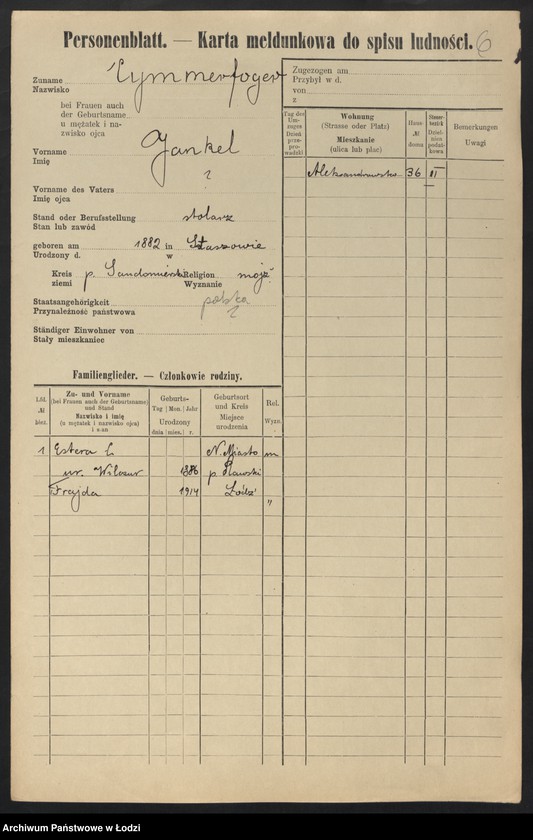 Personenblatt. — Karta meldunkowa do spisu ludności. 6
Zuname Cymmerfogel
Nazwisko
bei Frauen auch
der Geburtsname
u mężatek i na-
zwisko ojca
Vorname Jankel
Imię
Vorname des Vaters ?
Imię ojca
Stand oder Berufsstellung stolarz
Stan lub zawód
geboren am 1882 in Staszowie
Urodzony d. w
Kreis p. Sandomierski Religion mojż.
ziemi Wyznanie
Staatsangehörigkeit polska
Przynależność państwowa ?
Ständiger Einwohner von
Stały mieszkaniec
Zugezogen am
Przybył w d.
von
z
Tag des Um-zuges Dzień prze-prowadzki
Wohnung
(Strasse oder Platz)
Mieszkanie
(ulica lub plac)
Haus-
№
domu
Bemerkungen
Uwagi
Aleksandrowska 36 II
Familienglieder. — Członkowie rodziny.
Lfd.
№
bież.
Zu- und Vorname
(bei Frauen auch der Geburtsname)
und Stand
Nazwisko i imię
(u mężatek i nazwisko ojca)
Geburts-
Tag Mon. Jahr
Urodzony
dnia mies. r.
Geburtsort
und Kreis
Miejsce
urodzenia
Rel.
Wyzn.
1 Estera C. N. Miasto m
ur. Wilczur 1886 p. Rawski
Frajda 1914 Łódź "
Archiwum Państwowe w Łodzi